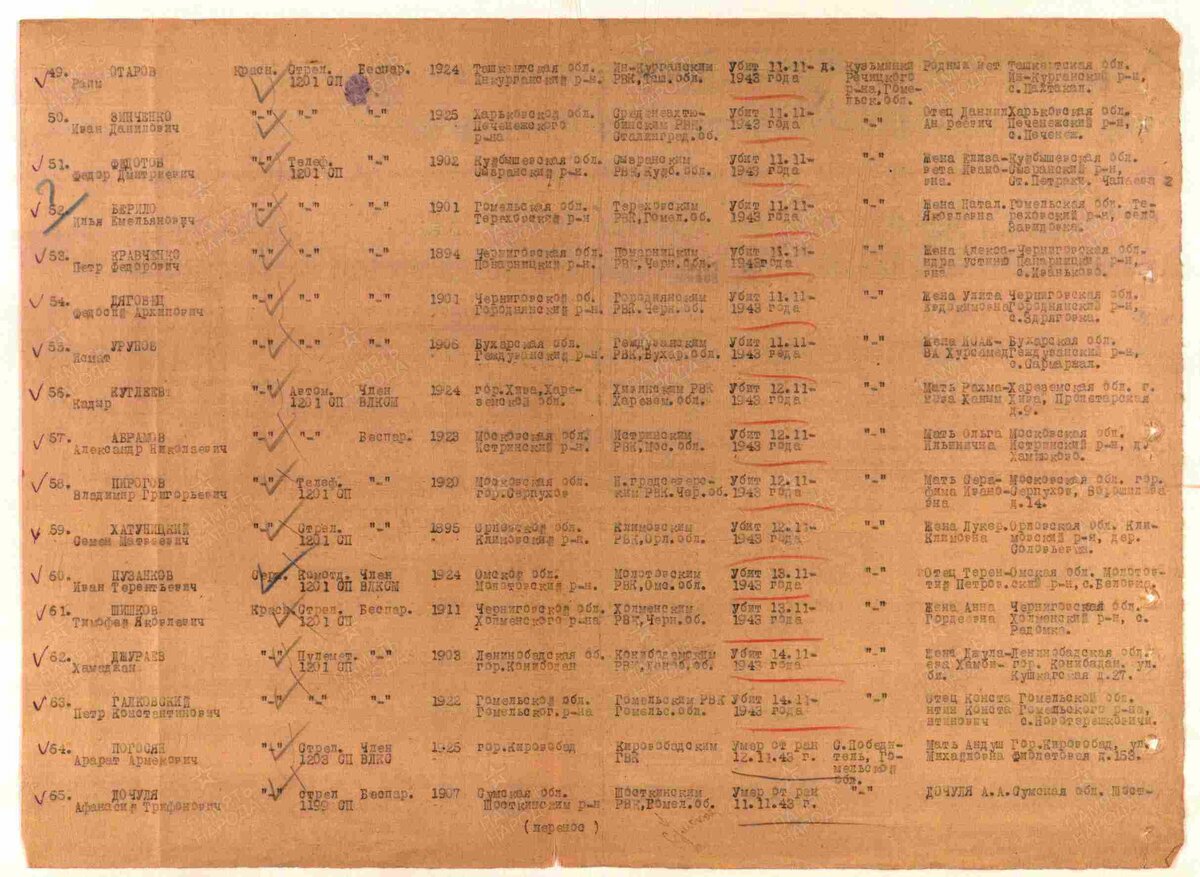 49. ОТАРОВ Красн. Стрел. Беспар. 1924 Ташкентская обл. Ин-Курганским Убит 11.11- д. Кузьминки Родных нет Ташкентская обл.
Раим 1201 СП Инкурганский р-н РВК, Таш.обл. 1943 года Речицкого Ин-Курганский р-н,
р-на, Гоме- с.Пахтакал.
льск.обл.
50. ЗИНЧЕНКО "-" "-" "-" 1925 Харьковской обл. Среднеахтю- Убит 11.11- Отец Даниил Харьковская обл.
Иван Данилович Печенежского бинским РВК 1943 года "-" Андреевич Печенежский р-н,
р-на Сталинград.об. с.Печенеж.
51. ФЕДОТОВ "-" Телеф. "-" 1902 Куйбышевская обл. Сызранским Убит 11.11- "-" Жена Елиза- Куйбышевская обл.
Федор Дмитриевич 1201 СП Сызранский р-н. РВК, Куйб.об. 1943 года вета Ивано- Сызранский р-н,
вна. Ст.Петраки, Чапаева 2
52. БЕРИЛО "-" "-" "-" 1901 Гомельская обл. Тереховским Убит 11.11- "-" Жена Натал. Гомельская обл. Те-
Илья Емельянович Тереховский р-н РВК, Гомел.об. 1943 года Яковлевна реховский р-н, село
Завидовка.
53. КРАВЧЕНКО "-" "-" "-" 1894 Черниговской обл. Понорницким Убит 11.11- "-" Жена Алекса- Черниговская обл.
Петр Федорович Понорницкий р-н. РВК, Черн.об. 1943года ндра Устино
вна с.Иваньково.
54. ДЯГОВЕЦ "-" "-" "-" 1901 Черниговской об. Городнянским Убит 11.11- "-" Жена Улита Черниговская обл.
Федосий Архипович Городнянский р-н. РВК. Черн.об. 1943 года Евдокимовна Городнянский р-н,
с.Здряговка.
55. УРУПОВ "-" "-" "-" 1906 Бухарская обл. Гемдуванским Убит 11.11- "-" Жена Бухарская обл.
Исмат Гемдуванский р-н. РВК, Бухар.об. 1943 года ВА Хурсамед Гемдуванский р-н,
с.Сармаржал.
56. КУГЛЕЕВ "-" Автом. Член 1924 гор.Хива, Харе- Хивинским РВК Убит 12.11- "-" Мать Рахма- Харезмская обл. г.
Кадыр 1201 СП ВЛКСМ земской обл. Харезм.обл. 1943 года нова Ханым Хива, Пролетарская
д.9.
57. АБРАМОВ "-" "-" Беспар. 1923 Московская обл. Истринским Убит 12.11- "-" Мать Ольга Московская обл.
Александр Николаевич Истринский р-н. РВК, Мос.обл. 1943 года Ильинична Истринский р-н, д.
Ханюково.
58. ПИРОГОВ "-" Телеф. "-" 1920 Московская обл. Убит 12.11- "-" Мать Сера- Московская обл. гор.
Владимир Григорьевич 1201 СП гор.Серпухов РВК. Чер.об. 1943 года фима Ивано- Серпухов, Ворошилова
вна д.14.
59. ХАТУНИЦКИЙ "-" Стрел. "-" 1895 Орловской обл. Климовским Убит 12.11- "-" Жена Лукер. Орловская обл. Кли-
Семен Матвеевич 1201 СП Климовский р-н. РВК, Орл.обл. 1943 года Климовна мовский р-н, дер.
Соловьевка.
60. ПУЗАНКОВ Серж. Комотд. Член 1924 Омской обл. Молотовским Убит 13.11- "-" Отец Терен- Омская обл. Молотов-
Иван Терентьевич 1201 СП ВЛКСМ Молотовский р-н. РВК, Омс.обл. 1943 года тий Петров. ский р-н, с.Беловка.
61. ШИШКОВ Красн. Стрел. Беспар. 1911 Черниговской обл. Холменским Убит 13.11- "-" Жена Анна Черниговская обл.
Тимофей Яковлевич 1201 СП Холменского р-на РВК, Черн.об. 1943 года Гордеевна Холменский р-н, с.
Радомка.
62. ДЖУРАЕВ "-" Пулемет. "-" 1903 Ленинобадская об. Конибодамским Убит 14.11- "-" Жена Джула- Ленинобадская обл.
Хамаджан 1201 СП гор.Конибодан РВК, 1943 года ева Хамби- гор. Конибадан, ул.
би. Кушкагская д.27.
63. ГАЛКОВСКИЙ "-" "-" "-" 1922 Гомельской обл. Гомельским РВК Убит 14.11- "-" Отец Конста Гомельской обл.
Петр Константинович Гомельског.р-на Гомельс.обл. 1943 года нтин Конста Гомельского р-на,
нтинович с.Новотерешковичи.
64. ПОГОСЯН "-" Стрел. Член 1925 гор.Кировобад Кировобадским Умер от ран С.Победи- Мать Андуш Гор.Кировобад, ул.
Арарат Армекович 1203 СП ВЛКС ГВК 12.11.43 г. тель, Го- Михайловна Фиолетовая д.153.
мельской
обл.
65. ДОЧУЛЯ "-" стрел Беспар. 1907 Сумская обл. Шосткинским Умер от ран "-" ДОЧУЛЯ А.А. Сумская обл. Шост-
Афанасий Трифонович 1199 СП Шосткинский р-н РВК, 11.11.43 г.
(перенос)